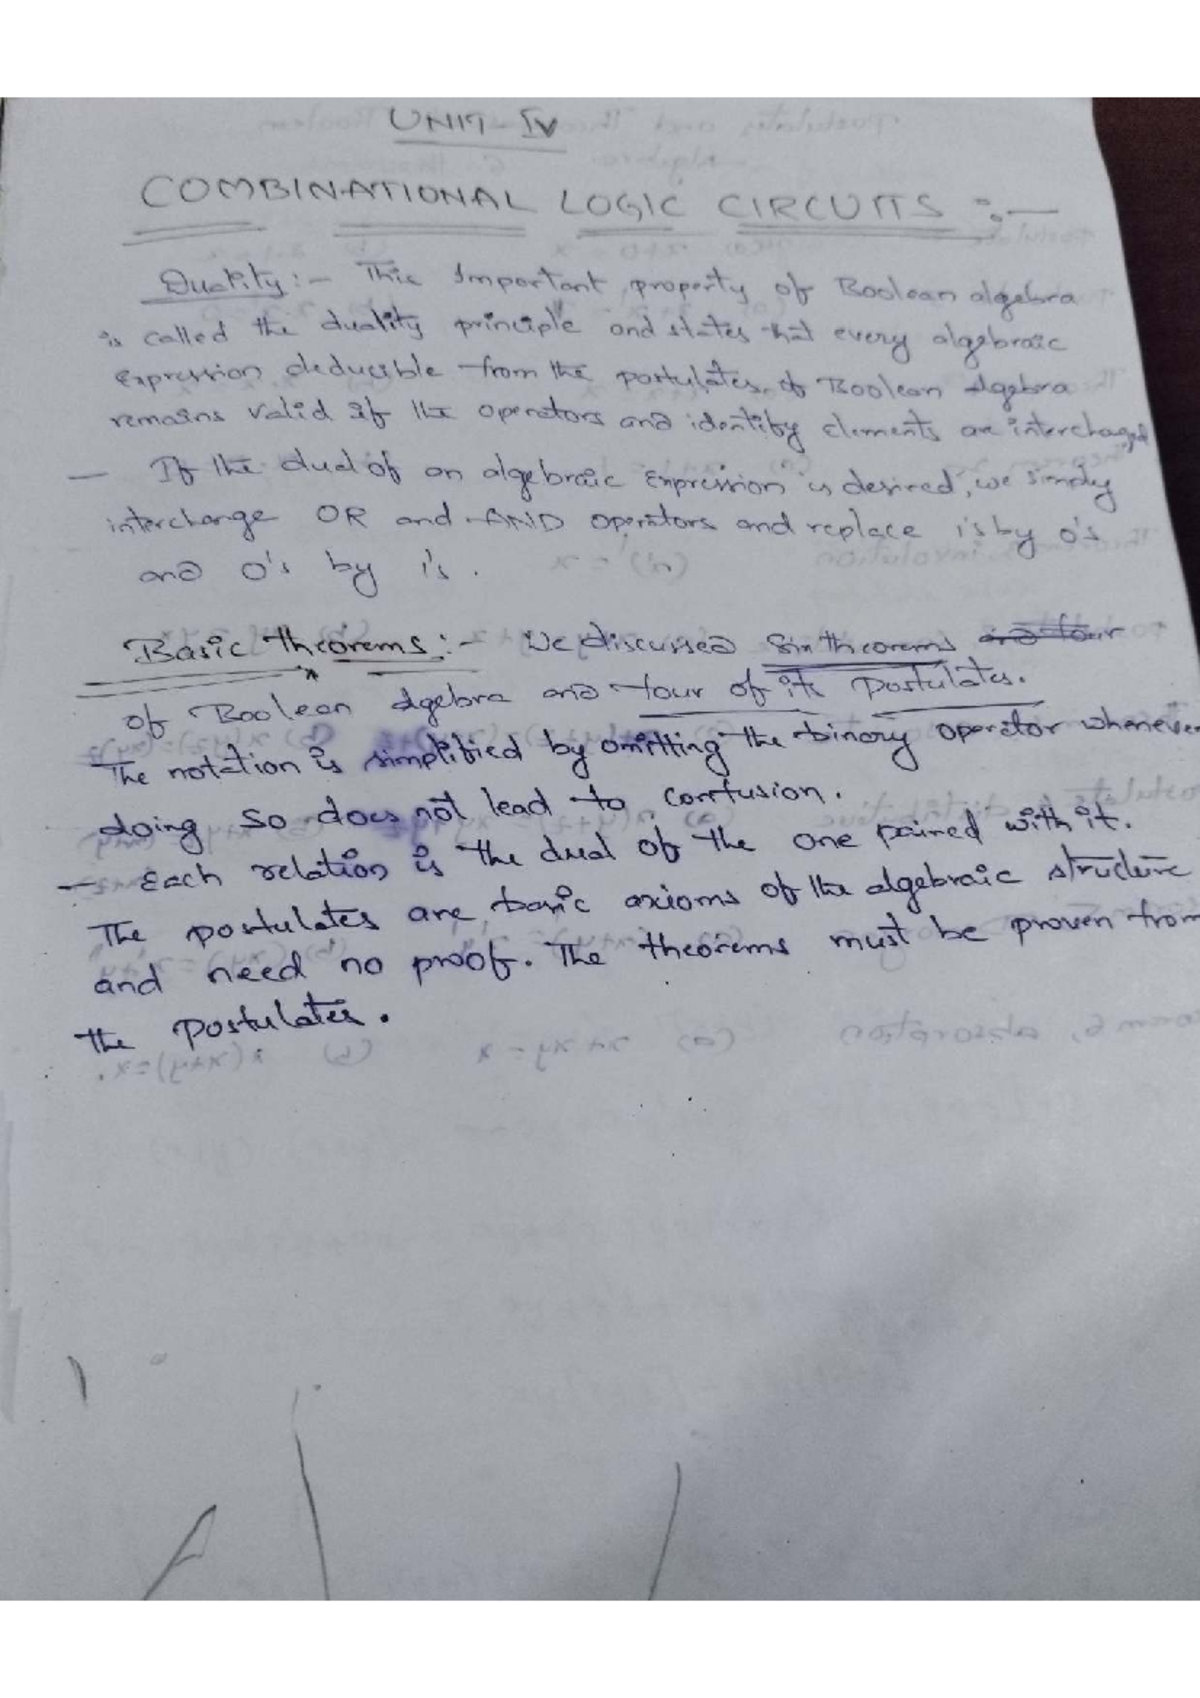 UNIT-IV
COMBINATIONAL LOGIC CIRCUITS :-
Duality :- This Important property of Boolean algebra
is called the duality principle and states that every algebraic
Expression deducible from the postulates of Boolean algebra
remains valid if the operators and identity elements are interchanged
- If the dual of an algebraic Expression is desired, we simply
interchange OR and AND operators and replace 1's by 0's
and 0's by 1's.
Basic theorems :- We discussed Six theorems and four
of Boolean algebra and four of its Postulates.
The notation is simplified by omitting the binary operator whenever
doing so does not lead to confusion.
- Each relation is the dual of the one paired with it.
The postulates are basic axioms of the algebraic structure
and need no proof. The theorems must be proven from
the Postulates.